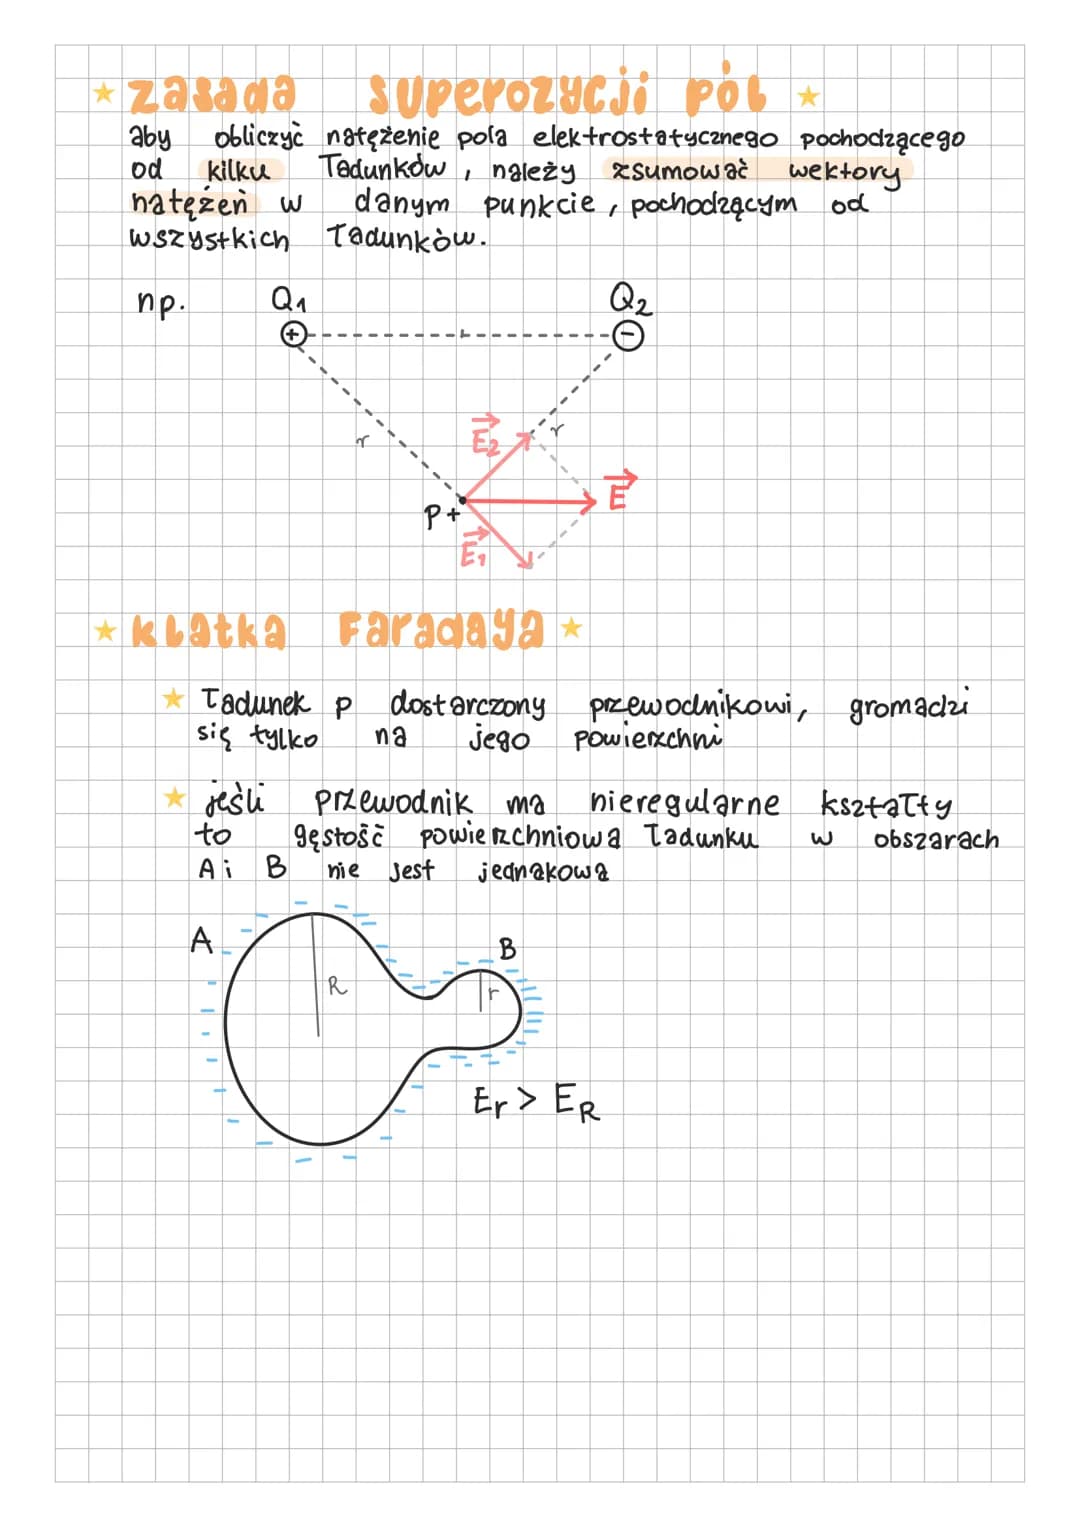 zasada superozycji pól
aby obliczyć natężenie pola elektrostatycznego pochodzącego
od kilku ładunków, należy zsumować wektory
natężeń w danym punkcie, pochodzącym od
wszystkich ładunków.
np. Q1 Q2
+ -
r r
E2
E
P+
E1
klatka Faradaya
ładunek p dostarczony przewodnikowi, gromadzi
się tylko na jego powierzchni
jeśli przewodnik ma nieregularne kształty
to gęstość powierzchniowa ładunku w obszarach
A i B nie jest jednakowa
A B
R r
Er > ER